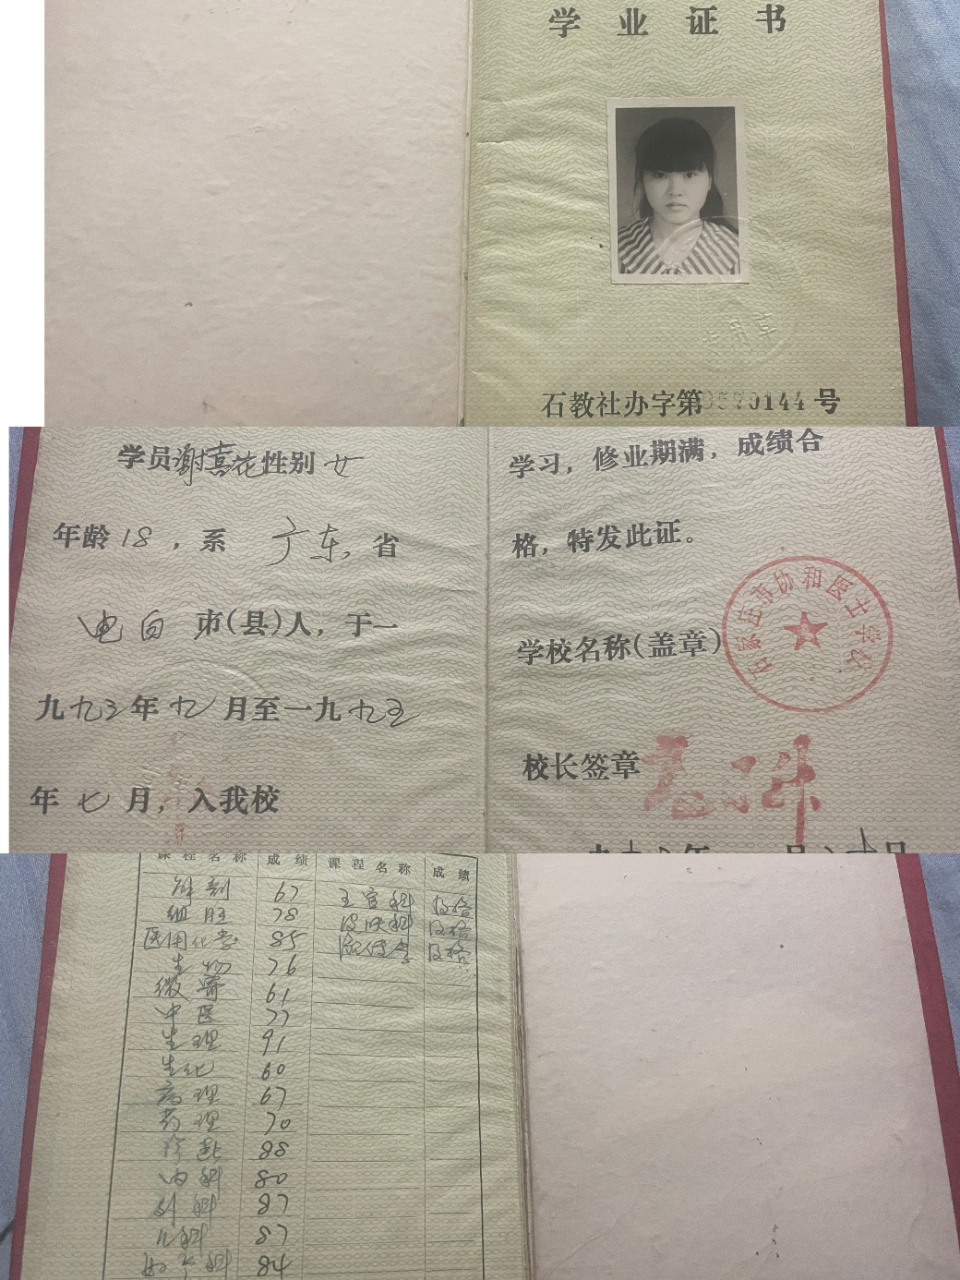 学业证书
石教社办字第9570144号
学员谢喜花性别女
年龄18，系广东省
电白市(县)人，于一
九九三年九月至一九九五
年七月，入我校
学习，修业期满，成绩合
格，特发此证。
学校名称(盖章)
石家庄市协和医士学校
校长签章
课程名称 成绩 课程名称 成绩
解剖 67 五官科 及格
组胚 78 皮肤科 及格
医用化学 85 流传学 及格
生物 76
微寄 61
中医 77
生理 91
生化 60
病理 67
药理 70
诊断 88
内科 80
外科 87
儿科 87
妇产科 84